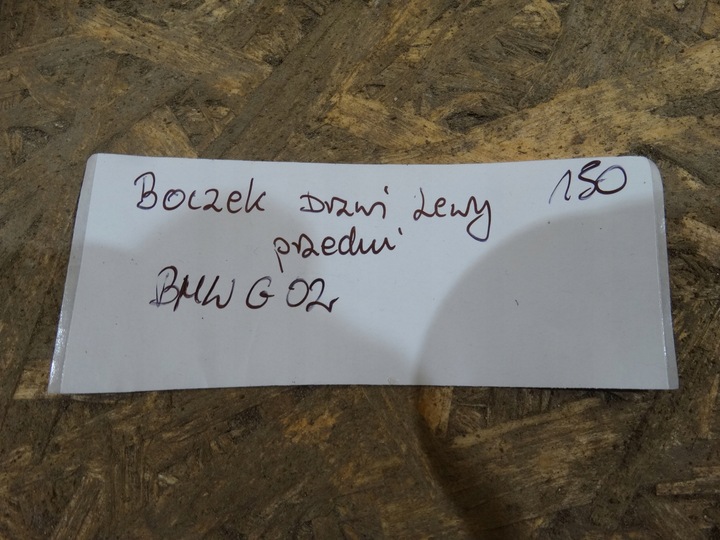 Boczek Drzwi Lewy 150
przedni
BMW G 02